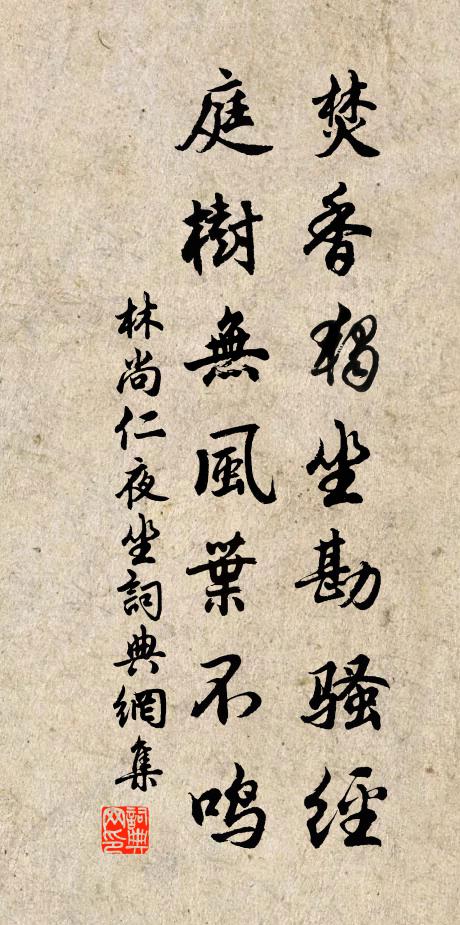 焚香獨坐勘騷經
庭樹無風葉不鳴
林尚仁夜坐詞典網集
詞典網印